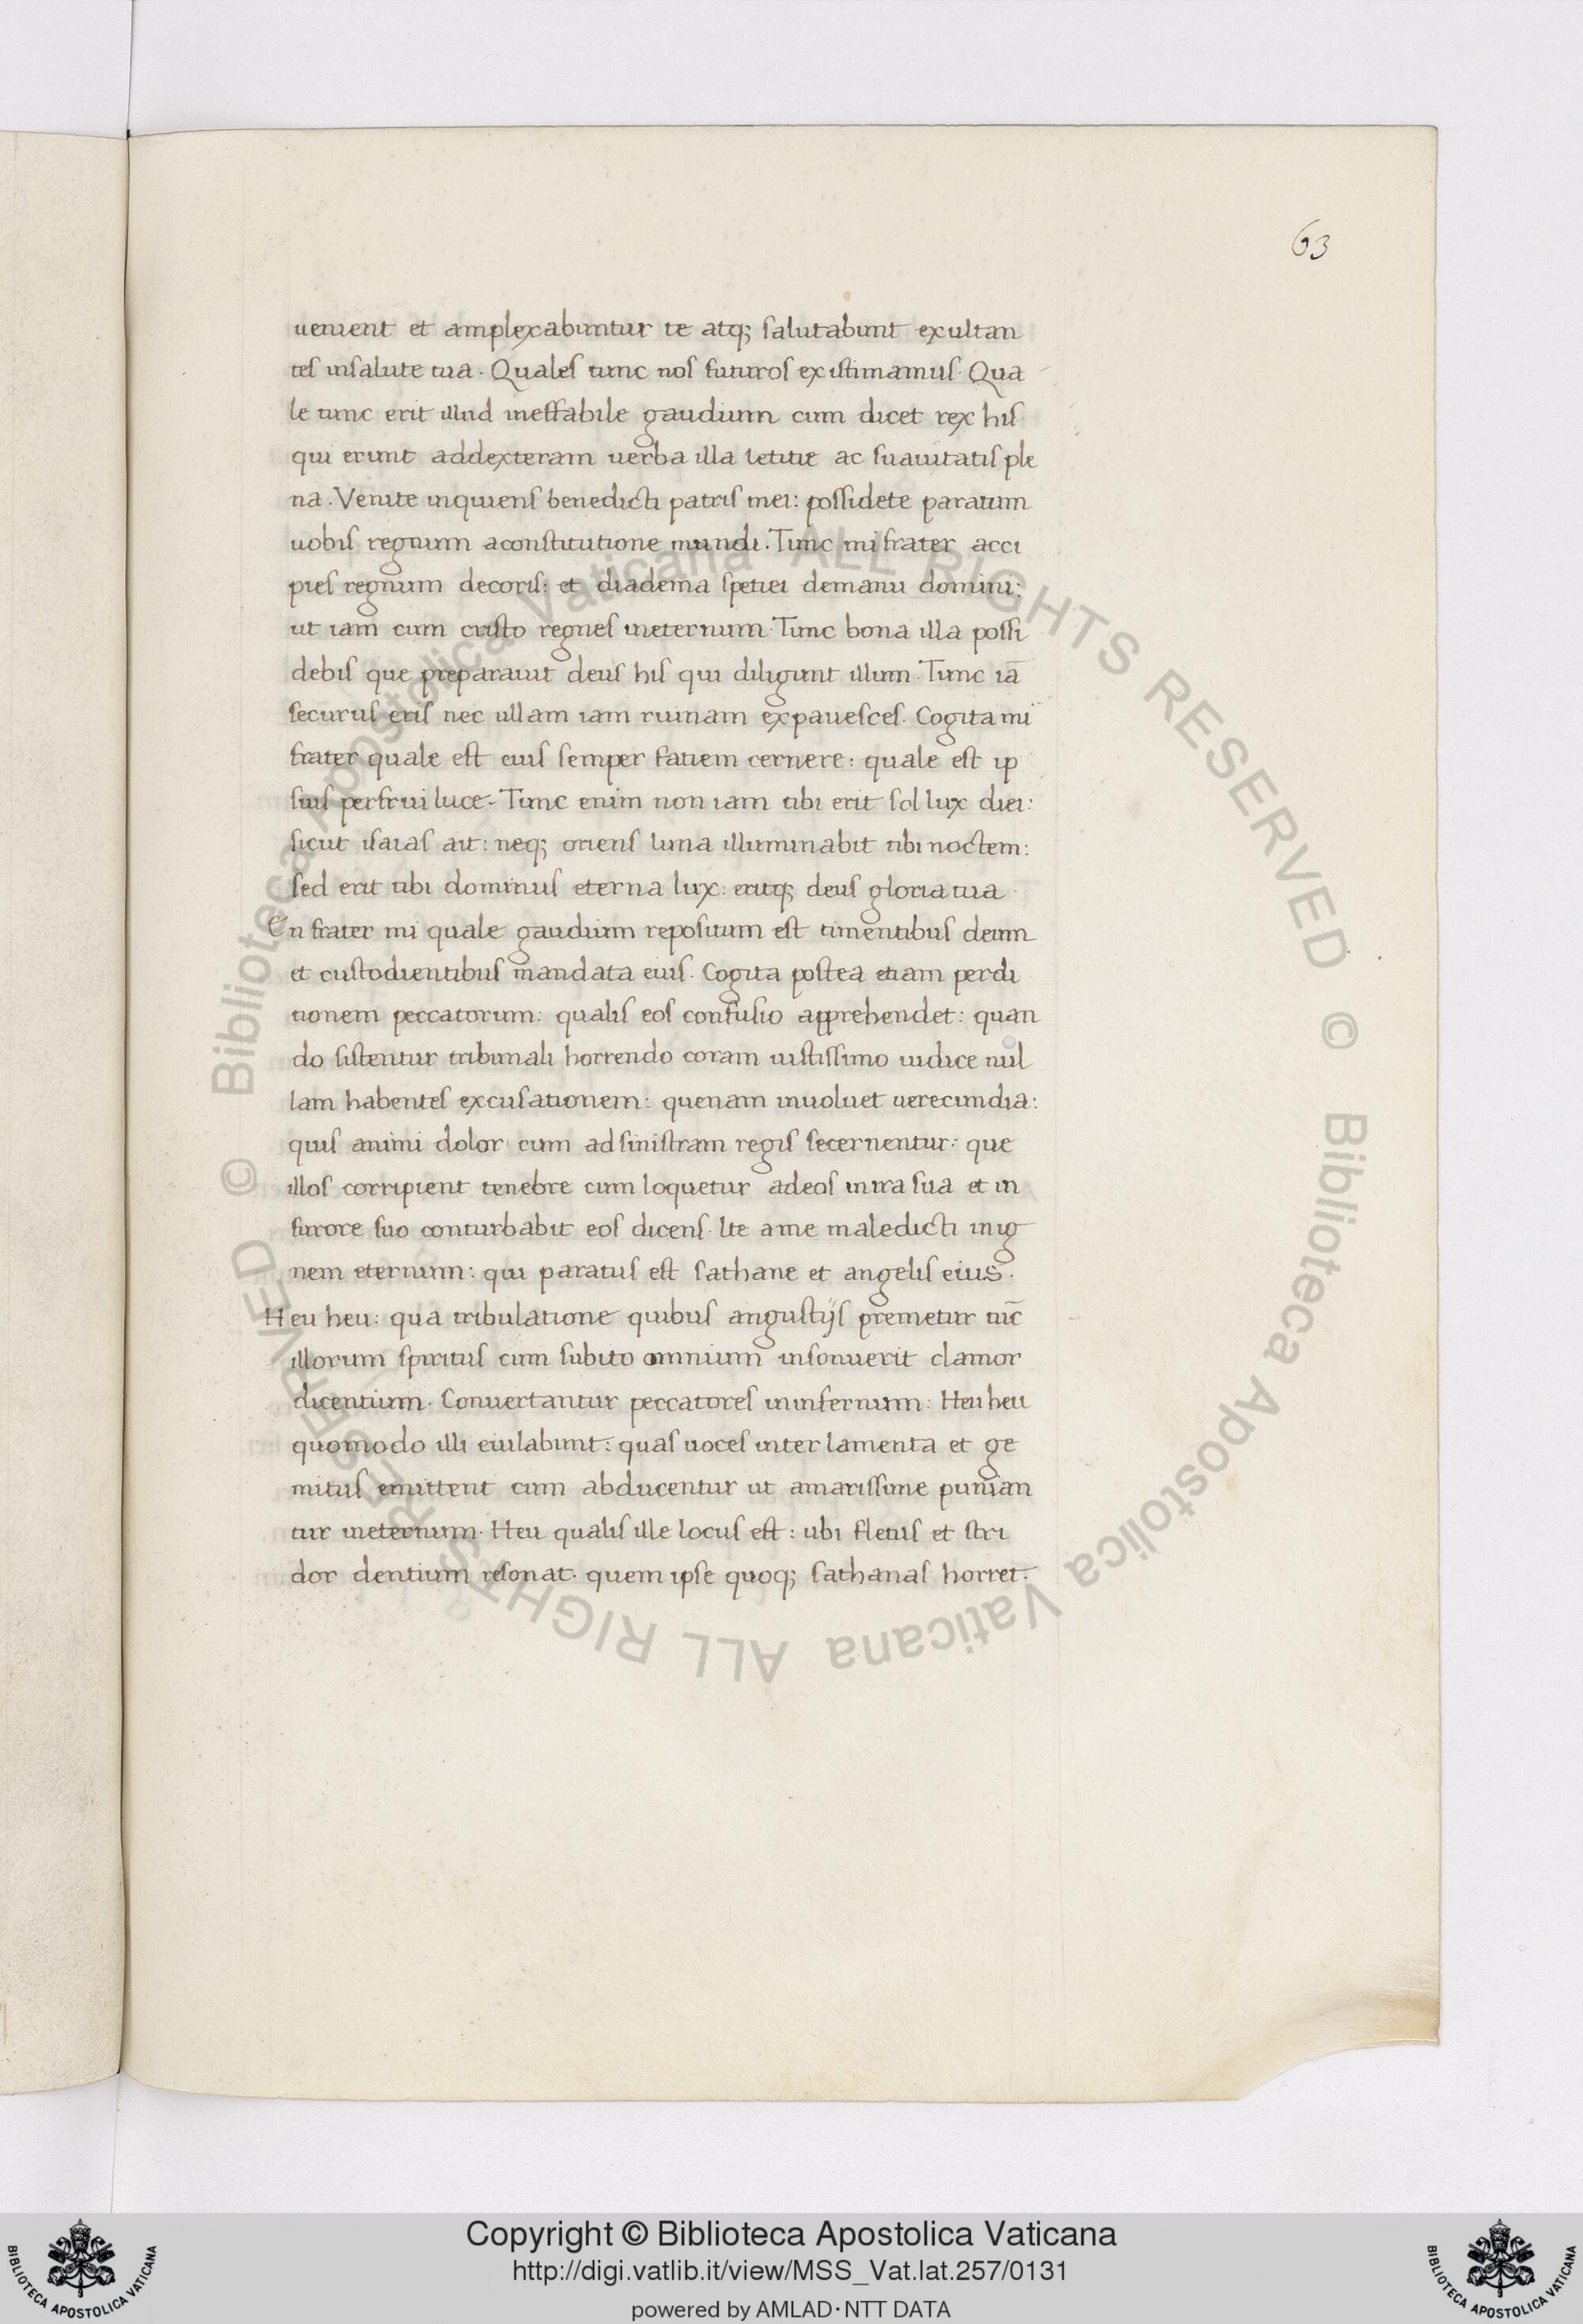 63
uenient et amplexabuntur te atq; salutabunt exultan
tes insalute tua. Quales tunc nos futuros existimamus. Qua
le tunc erit illud ineffabile gaudium cum dicet rex his
qui erunt addexteram uerba illa letitie ac suauitatis ple
na. Venite inquiens benedicti patris mei: possidete paratum
uobis regnum aconstitutione mundi. Tunc mi frater acci
pies regnum decoris: et diadema spetiei demanu domini:
ut iam cum cristo regnes ineternum. Tunc bona illa possi
debis que preparauit deus his qui diligunt illum. Tunc iā
securus eris nec ullam iam ruinam expauesces. Cogita mi
frater quale est eius semper fatiem cernere: quale est ip
sius perfrui luce. Tunc enim non iam tibi erit sol lux diei:
sicut isaias ait: neq; oriens luna illuminabit tibi noctem:
sed erit tibi dominus eterna lux: eritq; deus gloria tua.
En frater mi quale gaudium repositum est timentibus deum
et custodientibus mandata eius. Cogita postea etiam perdi
tionem peccatorum: qualis eos confusio apprehendet: quan
do sistentur tribunali horrendo coram iustissimo iudice nul
lam habentes excusationem: quenam inuoluet uerecundia:
quis animi dolor cum ad sinistram regis secernentur: que
illos corripient tenebre cum loquetur adeos inira sua et in
furore suo conturbabit eos dicens. Ite ame maledicti inig
nem eternum: qui paratus est sathane et angelis eius.
Heu heu: qua tribulatione quibus angustijs premetur tūc
illorum spiritus cum subito omnium insonuerit clamor
dicentium. Conuertantur peccatores ininfernum: Heu heu
quomodo illi eiulabunt: quas uoces inter lamenta et ge
mitus emittent cum abducentur ut amarissime punian
tur ineternum. Heu qualis ille locus est: ubi fletus et stri
dor dentium resonat. quem ipse quoq; sathanas horret.
© Biblioteca Apostolica Vaticana ALL RIGHTS RESERVED © Biblioteca Apostolica Vaticana ALL RIGHTS RESERVED
Copyright © Biblioteca Apostolica Vaticana
http://digi.vatlib.it/view/MSS_Vat.lat.257/0131
powered by AMLAD·NTT DATA
BIBLIOTECA APOSTOLICA VATICANA
BIBLIOTECA APOSTOLICA VATICANA